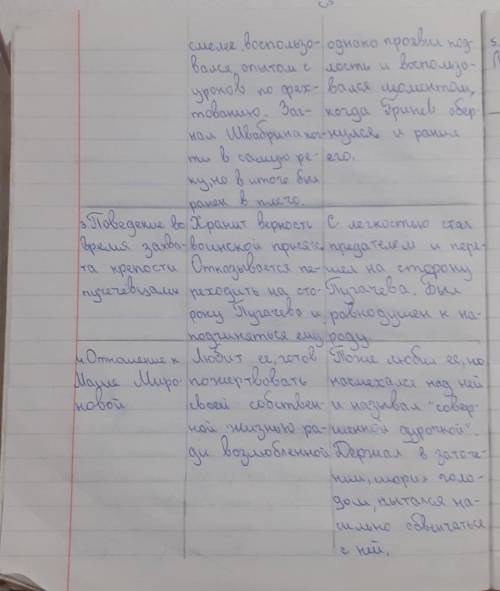 смелее, воспользо-
вался опытом с
уроков по фех-
тованию. Заг-
нал Швабрина поч-
ти в самую ре-
ку, но в итоге был
ранен в плечо.
однако проявил под-
лость и воспользо-
вался моментом,
когда Гринев обер-
нулся и ранил
его.
3. Поведение во
время захва-
та крепости
пугачевцами
Хранит верность
воинской присяге.
Отказывается пе-
реходить на сто-
рону Пугачева и
подчиняться ему
С легкостью стал
предателем и пере-
шел на сторону
Пугачева. Был
равнодушен к на-
роду.
4. Отношение к
Маше Миро-
новой
Любит ее, готов
пожертвовать
своей собствен-
ной жизнью ра-
ди возлюбленной
Тоже любил ее, но
насмехался над ней
и называл "совер-
шенной дурочкой".
Держал в заточе-
нии, морил голо-
дом, пытался на-
сильно обвенчаться
с ней.